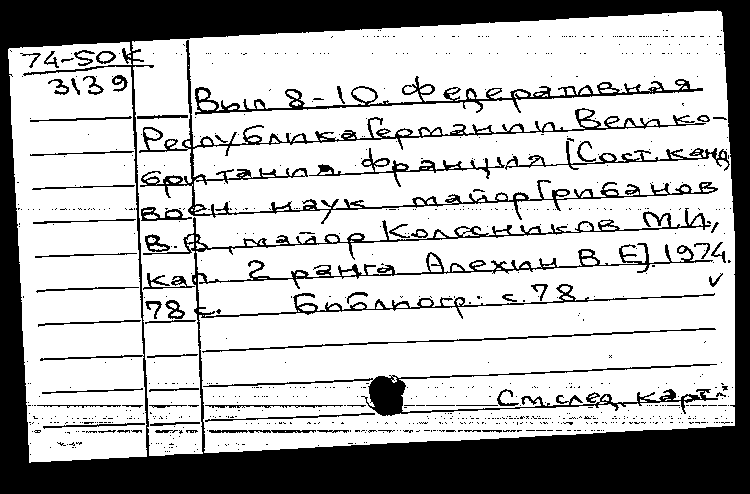 74-SOK
3139
Вып 8-10. Федеративная
Республика Германии. Велико-
британия. Франция [Сост. канд
воен. наук майор Грибанов
В.В., майор Колесников М.И.,
кап. 2 ранга Алехин В.Е]. 1974.
78 с. Библиогр.: с. 78.
См. след. карт.